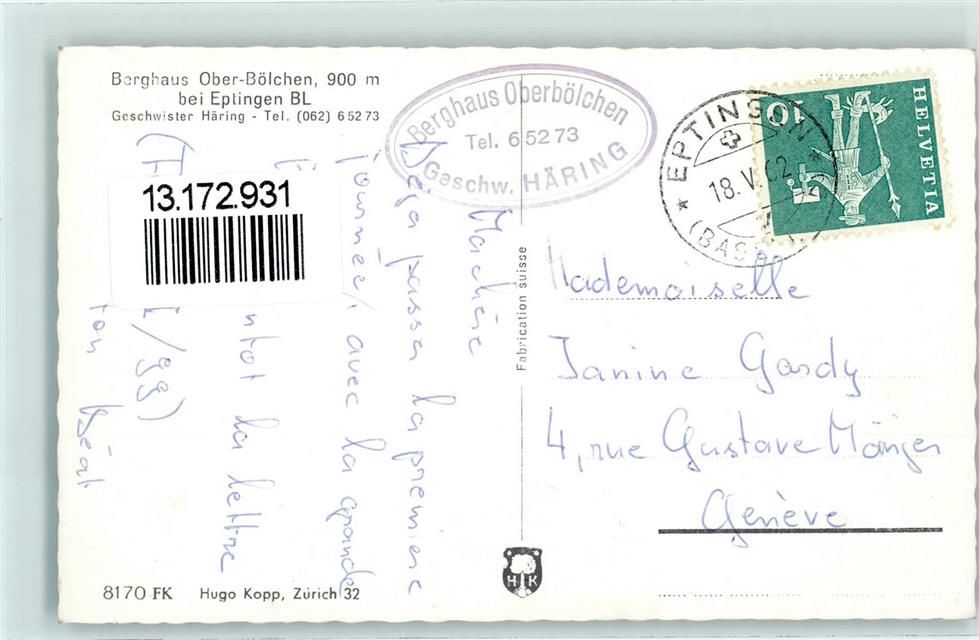 Berghaus Ober-Bölchen, 900 m
bei Eptingen BL
Geschwister Häring - Tel. (062) 6 52 73
Berghaus Oberbölchen
Tel. 6 52 73
Geschw. HÄRING
EPTINGEN
18. V. 62
(BAS
HELVETIA
10
13.172.931
Machérie
Déja passé la première
journée, avec la grande
ntôt la lettre
/gg)
ton Béat
Fabrication suisse
Mademoiselle
Janine Gardy
4, rue Gustave
Genève
H K
8170 FK Hugo Kopp, Zürich 32